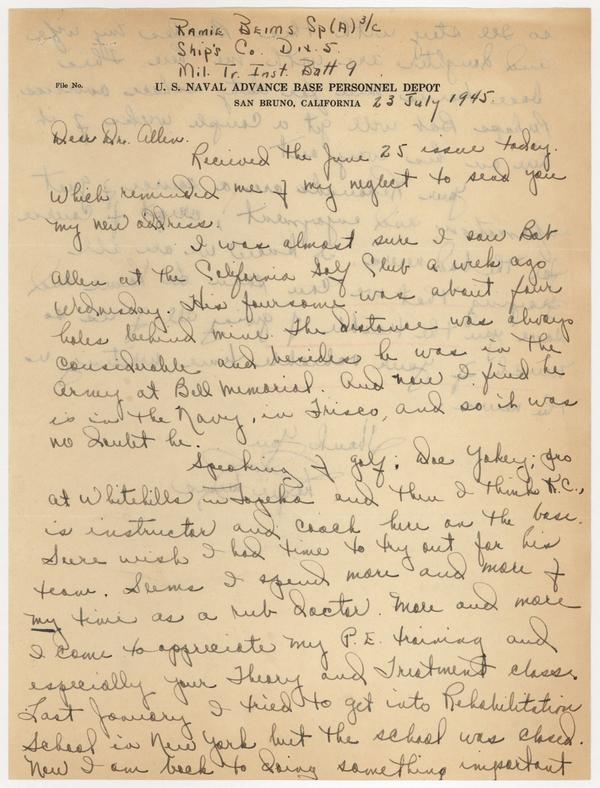 Ramie Beims Sp(A) 3/c
Ship's Co. Div. 5.
Mil. Tr. Inst. Batt 9.
File No. U. S. NAVAL ADVANCE BASE PERSONNEL DEPOT
SAN BRUNO, CALIFORNIA 23 July 1945.
Dear Dr. Allen.
Recieved the June 25 issue today.
Which reminded me of my neglect to send you
my new address.
I was almost sure I saw Bob
Allen at the California Golf Club a week ago
Wednesday. His foursome was about four
holes behind mine. The distance was always
considerable and besides he was in the
Army at Bell Memorial. And now I find he
is in the Navy, in Frisco, and so it was
no doubt he.
Speaking of golf; Doc Yokey; pro
at Whitehills in Topeka and then I think K.C.,
is instructor and coach here on the base.
Sure wish I had time to try out for his
team. Seems I spend more and more of
my time as a rub doctor. More and more
I come to appreciate my P.E. training and
especially your Theory and Treatment classes.
Last January I tried to get into Rehabilitation
School in New York but the school was closed.
Now I am back to doing something important